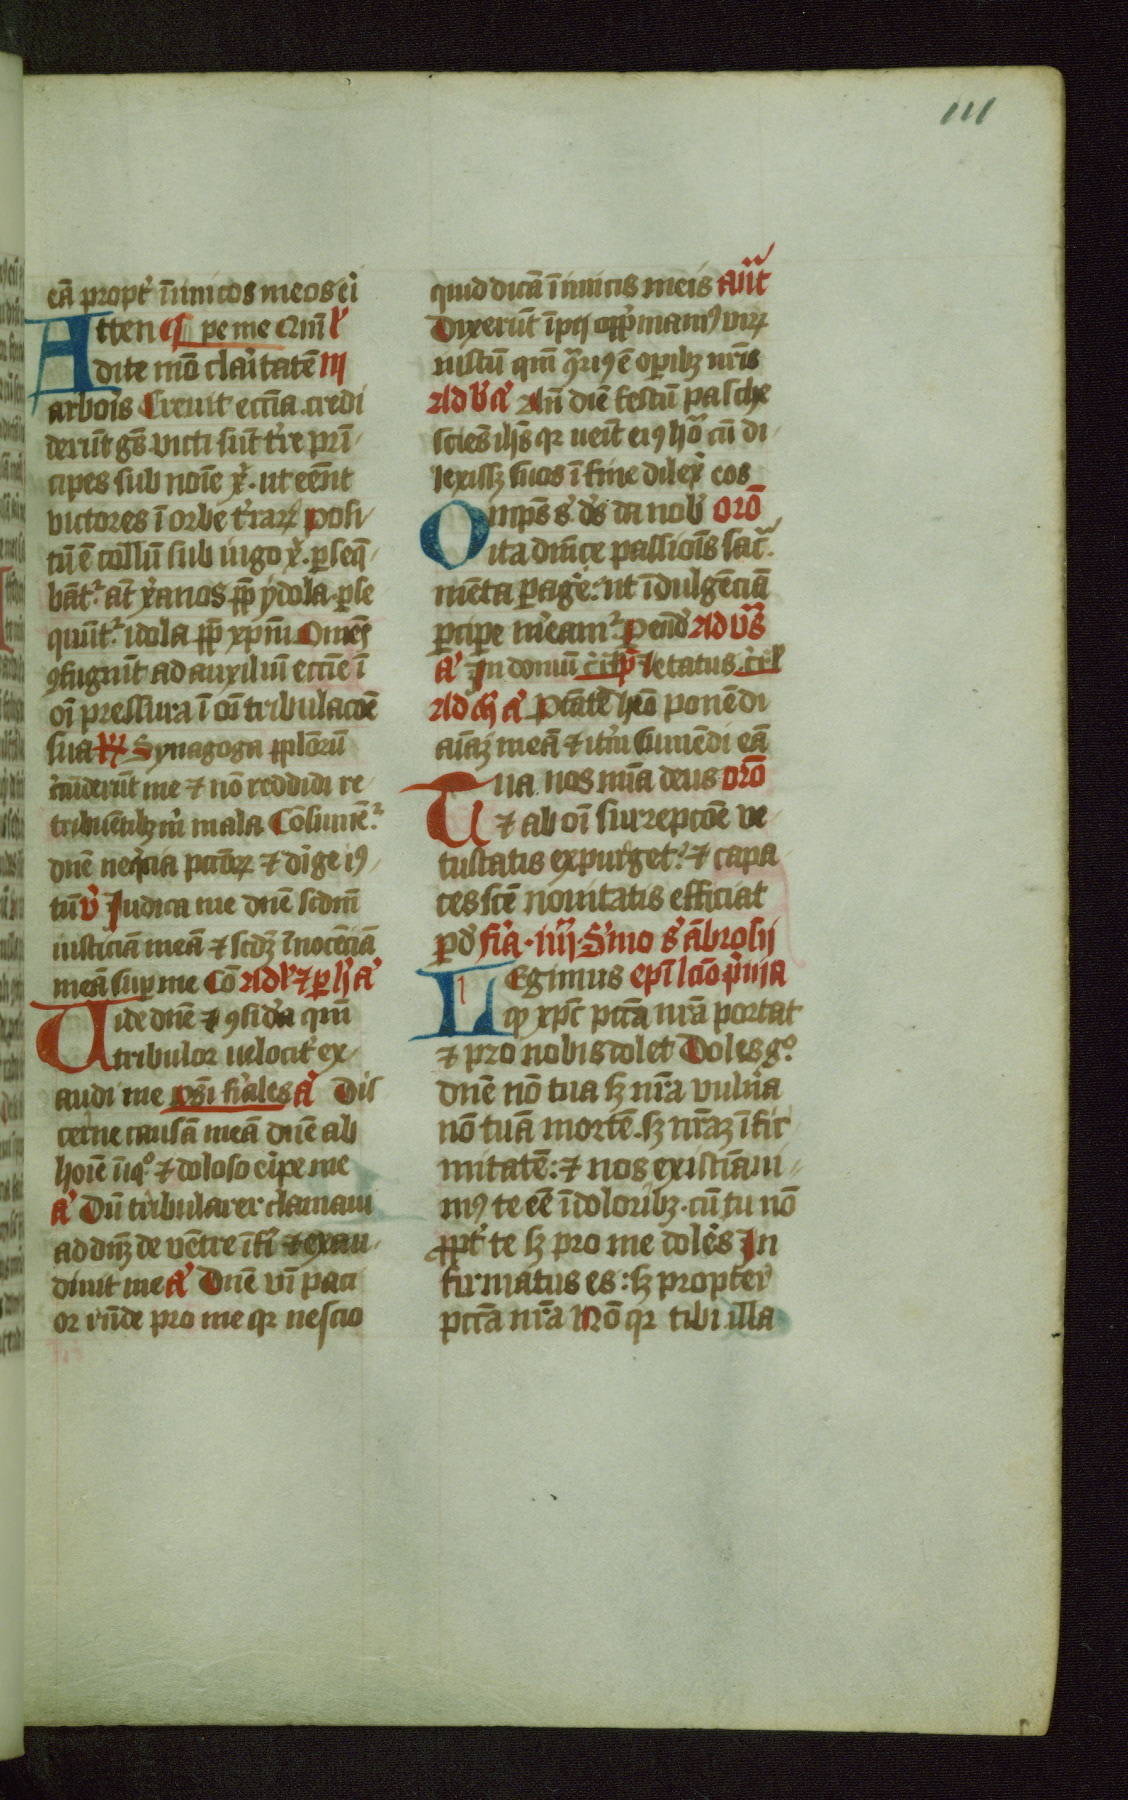 111
eā propt̛ īnimicos meos ei
Atten pe me Qm̄ l̛
dite mō claritatē III
arboīs Crevit eccīa credi
derūt gēs victi sūt t̛re prī
cipes sub noīe x̛. ut eēnt
victores ī orbe t̛rarꝝ posi
tū ē collū sub iugo x̛. ꝑseq̄
bāt᷑ at̄ x̛anos ꝓp̄ ydola ꝑse
quūt᷑ idola ꝓp̄ xp̄m Om̄es
ꝯfugiūt ad auxiliū eccīe ī
oī pressura ī oī tribulacōe
sua Synagoga pplōrū
me ⁊ nō reddidi re
tribuētibꝫ m̄ mala Cōsumet᷑
dn̄e neq̄cia pctōrꝝ ⁊ dīge iꝰ
tū v̛ Judica me dn̄e scdm̄
iusticiā meā ⁊ scdꝫ īnocēciā
meā suꝑ me Cō Ad
Uide dn̄e ⁊ ꝯsid̛a qm̄
tribulor velocit̛ ex
audi me a̛ Dis
cerne causā meā dn̄e ab
hoīe īiqͦ ⁊ doloso eripe me
a̛ Dū tribularer clamavi
ad dn̄ꝫ de vētre īf̛i ⁊ exau
divit me a̛ Dn̄e vī paci
or rn̄de pro me qꝛ nescio
quid dicā īimicis meis Ant̄
Dixerūt īpij opp̄mamꝰ virꝝ
iustū qm̄ ꝯ̄riꝰ ē oꝑibꝫ nr̄is
Ad b̛ a̛ An̄ diē festū pasche
sciēs ih̄s qꝛ veīt eiꝰ ho᷑ cū di
lexissꝫ suos ī fine dilex̛ eos
Oīnpn̄s s̛ ds̄ da nob̛ Orō
ita dn̄ice passiōīs sac᷑
mēta ꝑage̛ ut īdulgēciā
ꝑcipe m̛eam᷑ ꝑ eūd̛ Ad v̄s
a̛ In domū letatus
Ad a̛ Ptātē heō ponēdi
aīaꝫ meā ⁊ itm̛ sumēdi eā
Tua nos mīa deus Orō
⁊ ab oī surrepcōe ve
tustatis expurget᷑ ⁊ capa
ces scē novitatis efficiat
ꝑ d̛ fīa iiij S̛mo s̛ ābrosij
Legimus epī lc̄io p̛ma
qꝫ xpc̄ pctā nr̄a portat
⁊ pro nobis dolet Doles gͦ
dn̄e nō tua sꝫ nr̄a vuln̛a
nō tuā mortē. sꝫ nr̄aꝫ īfir
mitatē: ⁊ nos existīavi
mꝰ te eē ī doloribꝫ. cū tu nō
ꝓpt̛ te sꝫ pro me doles In
firmatus es: sꝫ propter
pctā nr̄a Nō qꝛ tibi illa